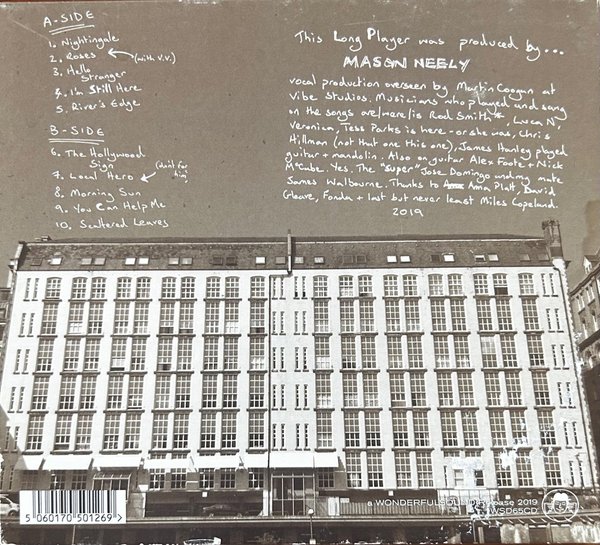 A-SIDE
1. Nightingale
2. Roses
(with V.V.)
3. Hello
Stranger
4. I'm Still Here
5. River's Edge
B-SIDE
6. The Hollywood
Sign
7. Local Hero
(don't for
him)
8. Morning Sun
9. You Can Help Me
10. Scattered Leaves
This Long Player was produced by...
MASON NEELY
vocal production overseen by Martin Coogan at
Vibe Studios. Musicians who played and sang
on the songs are/were/is Rod Smith*, Luca N'
Veronica, Tess Parks is here - or she was, Chris
Hillman (not that one this one), James Hanley played
guitar + mandolin. Also on guitar Alex Foote + Nick
McCabe. Yes. The "super" Jose Domingo und my mate
James Walbourne. Thanks to Anna Platt, David
Gleave, Fonda + last but never least Miles Copeland.
2019
5 060170 501269 >
a WONDERFULSOUND release 2019
WSD65CD